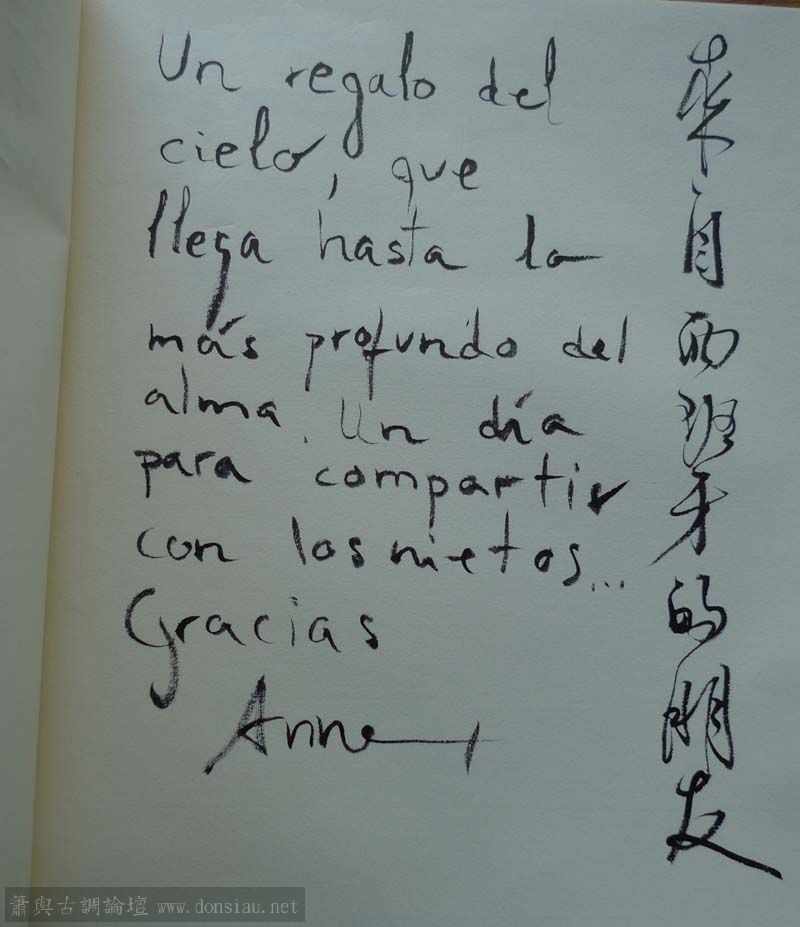 Un regalo del
cielo, que
llega hasta lo
más profundo del
alma. Un día
para compartir
con los nietos...
Gracias
Anne
來自西班牙的朋友
簫與古調論壇 www.donsiau.net